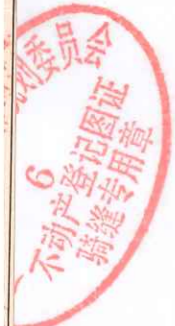 划委员会
6
不动产登记图证
骑缝专用章